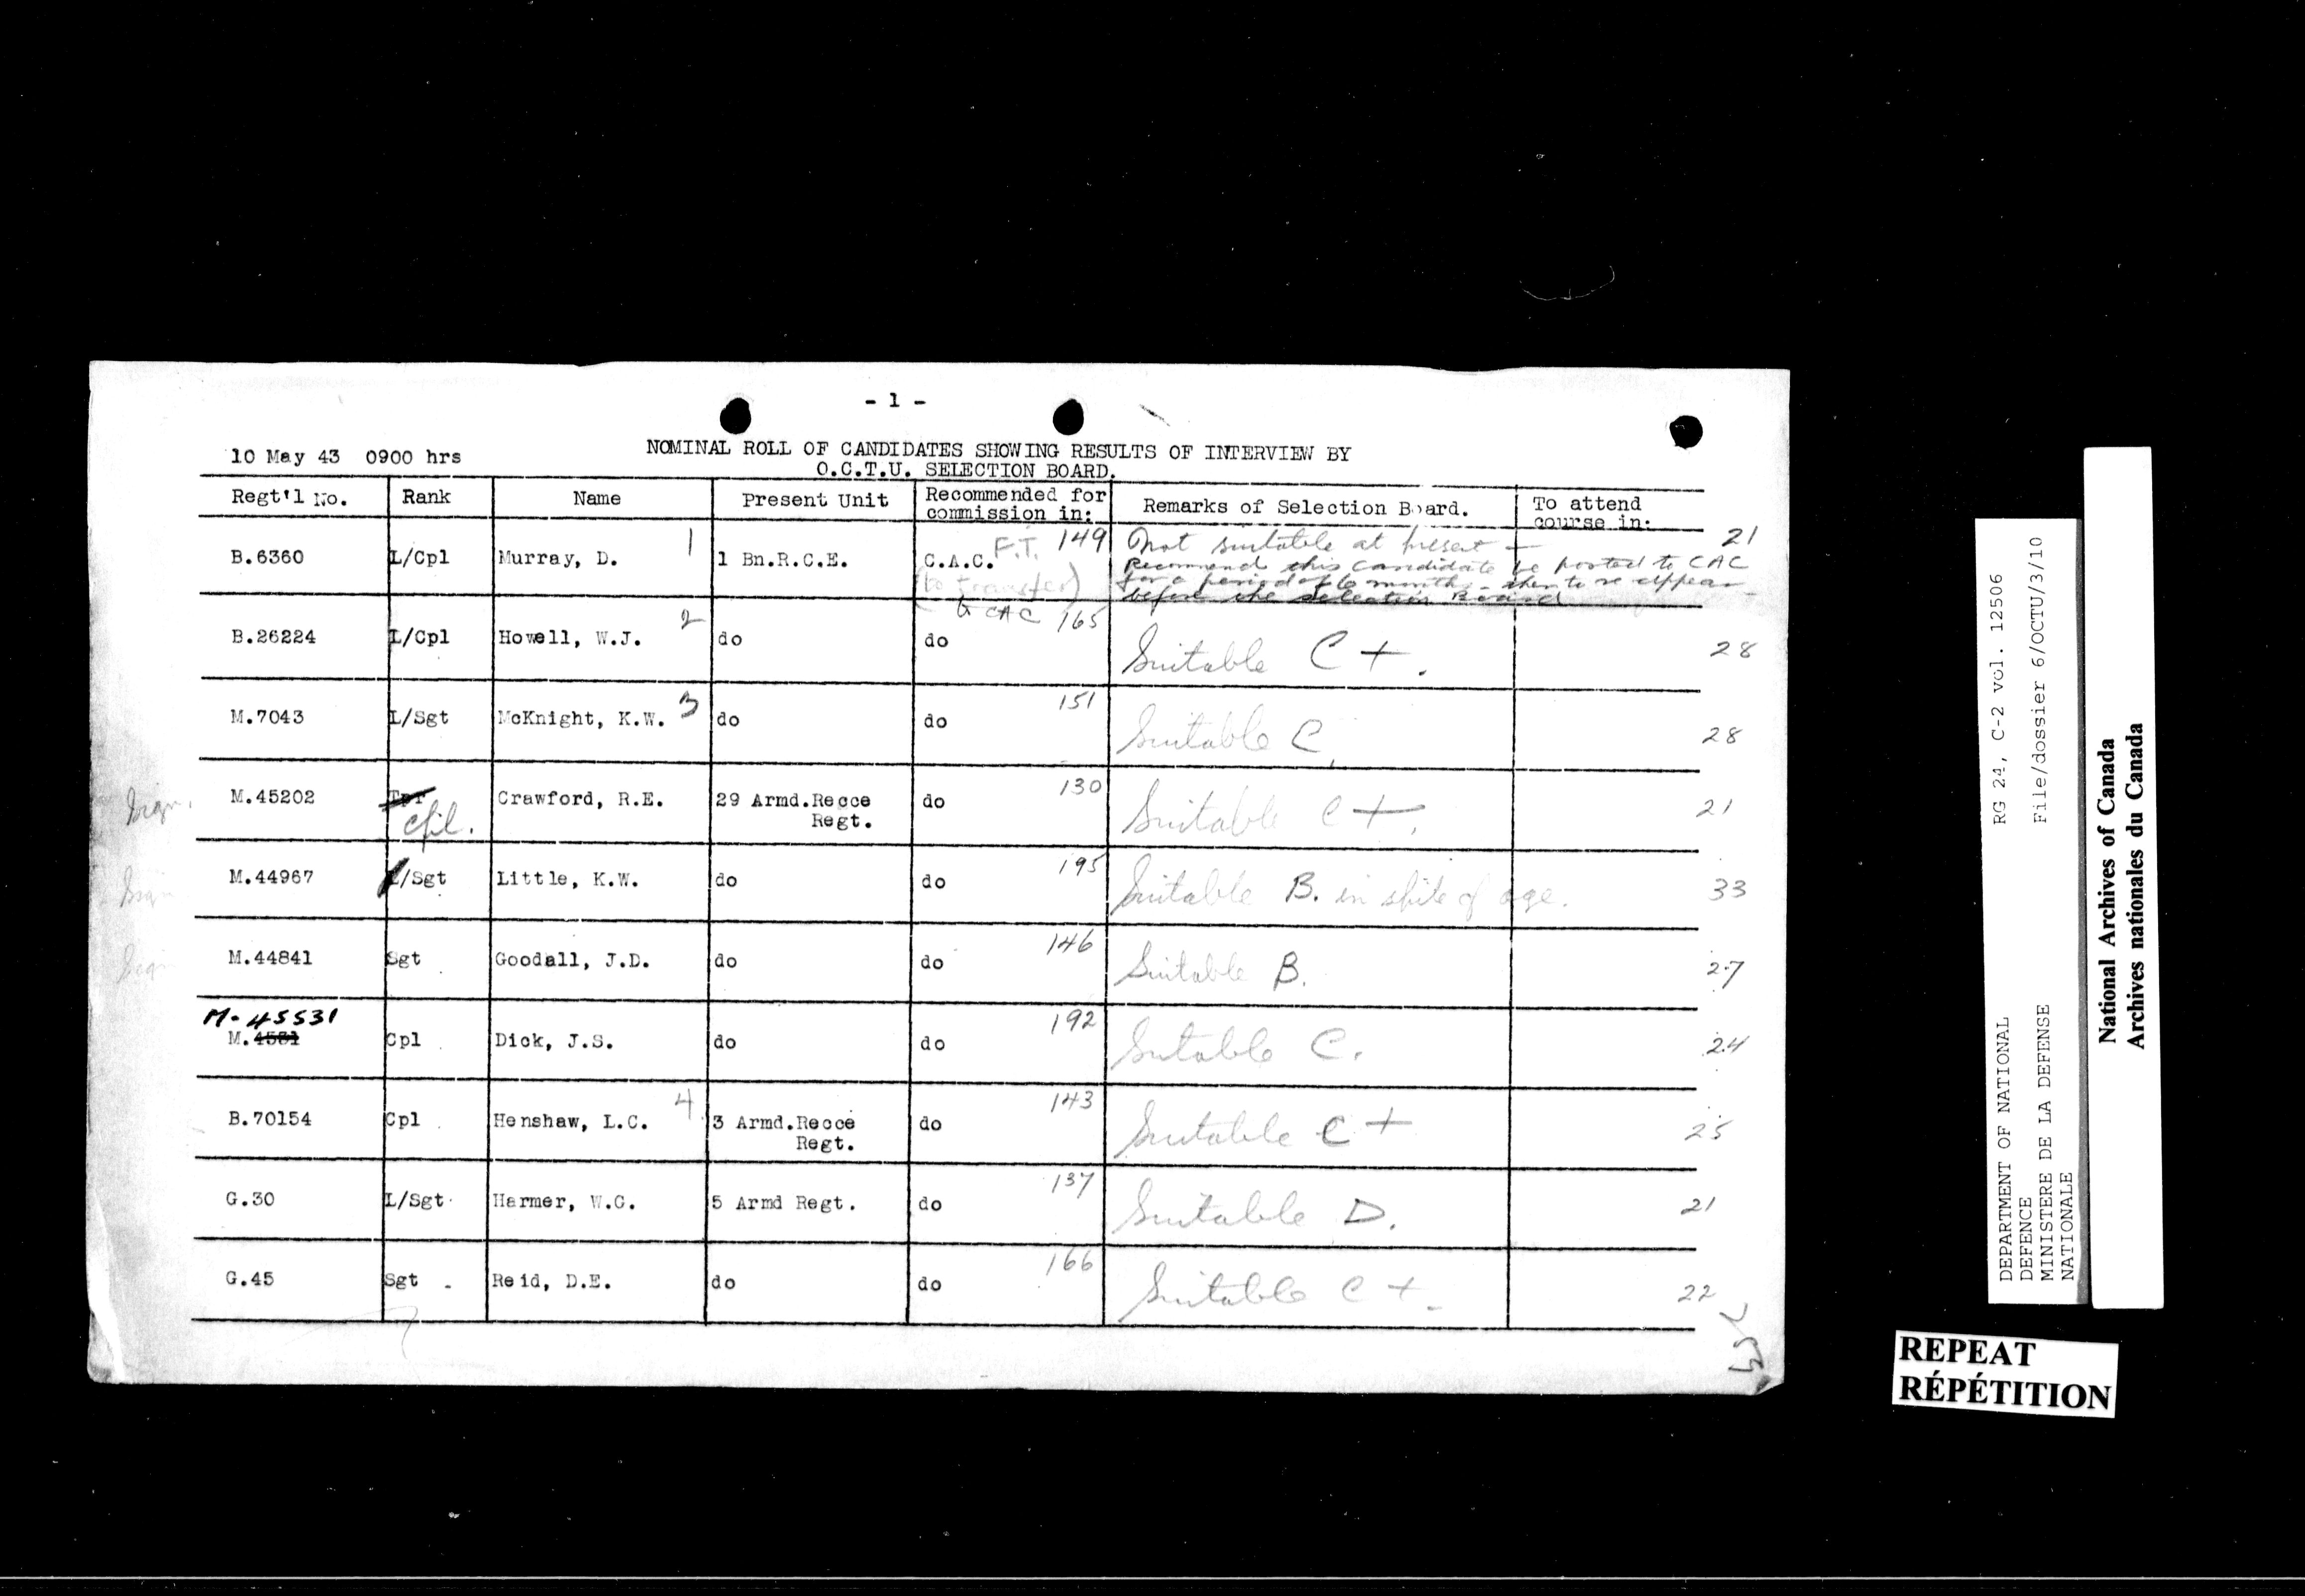 - 1 -
10 May 43 0900 hrs
NOMINAL ROLL OF CANDIDATES SHOWING RESULTS OF INTERVIEW BY
O.C.T.U. SELECTION BOARD.
Regt'l No. Rank Name Present Unit Recommended for commission in: Remarks of Selection Board. To attend course in:
B.6360 L/Cpl Murray, D. 1 1 Bn.R.C.E. C.A.C. F.T. 149 Not suitable at present — 21
(to transfer) Recommend this candidate be posted to CAC
for a period of 6 months - then to re appear
to CAC before the Selection Board
B.26224 L/Cpl Howell, W.J. 2 do do 165 Suitable C+. 28
M.7043 L/Sgt McKnight, K.W. 3 do do 151 Suitable C 28
M.45202 Tpr Cpl. Crawford, R.E. 29 Armd.Recce Regt. do 130 Suitable C+. 21
M.44967 L/Sgt Little, K.W. do do 195 Suitable B. in spite of age. 33
M.44841 Sgt Goodall, J.D. do do 146 Suitable B. 27
M-45531
M.4531 Cpl Dick, J.S. do do 192 Suitable C. 24
B.70154 Cpl Henshaw, L.C. 4 3 Armd.Recce Regt. do 143 Suitable C+ 25
G.30 L/Sgt Harmer, W.G. 5 Armd Regt. do 137 Suitable D. 21
G.45 Sgt Reid, D.E. do do 166 Suitable C+. 22
DEPARTMENT OF NATIONAL DEFENCE
MINISTERE DE LA DEFENSE NATIONALE
RG 24, C-2 vol. 12506
File/dossier 6/OCTU/3/10
National Archives of Canada
Archives nationales du Canada
REPEAT
RÉPÉTITION